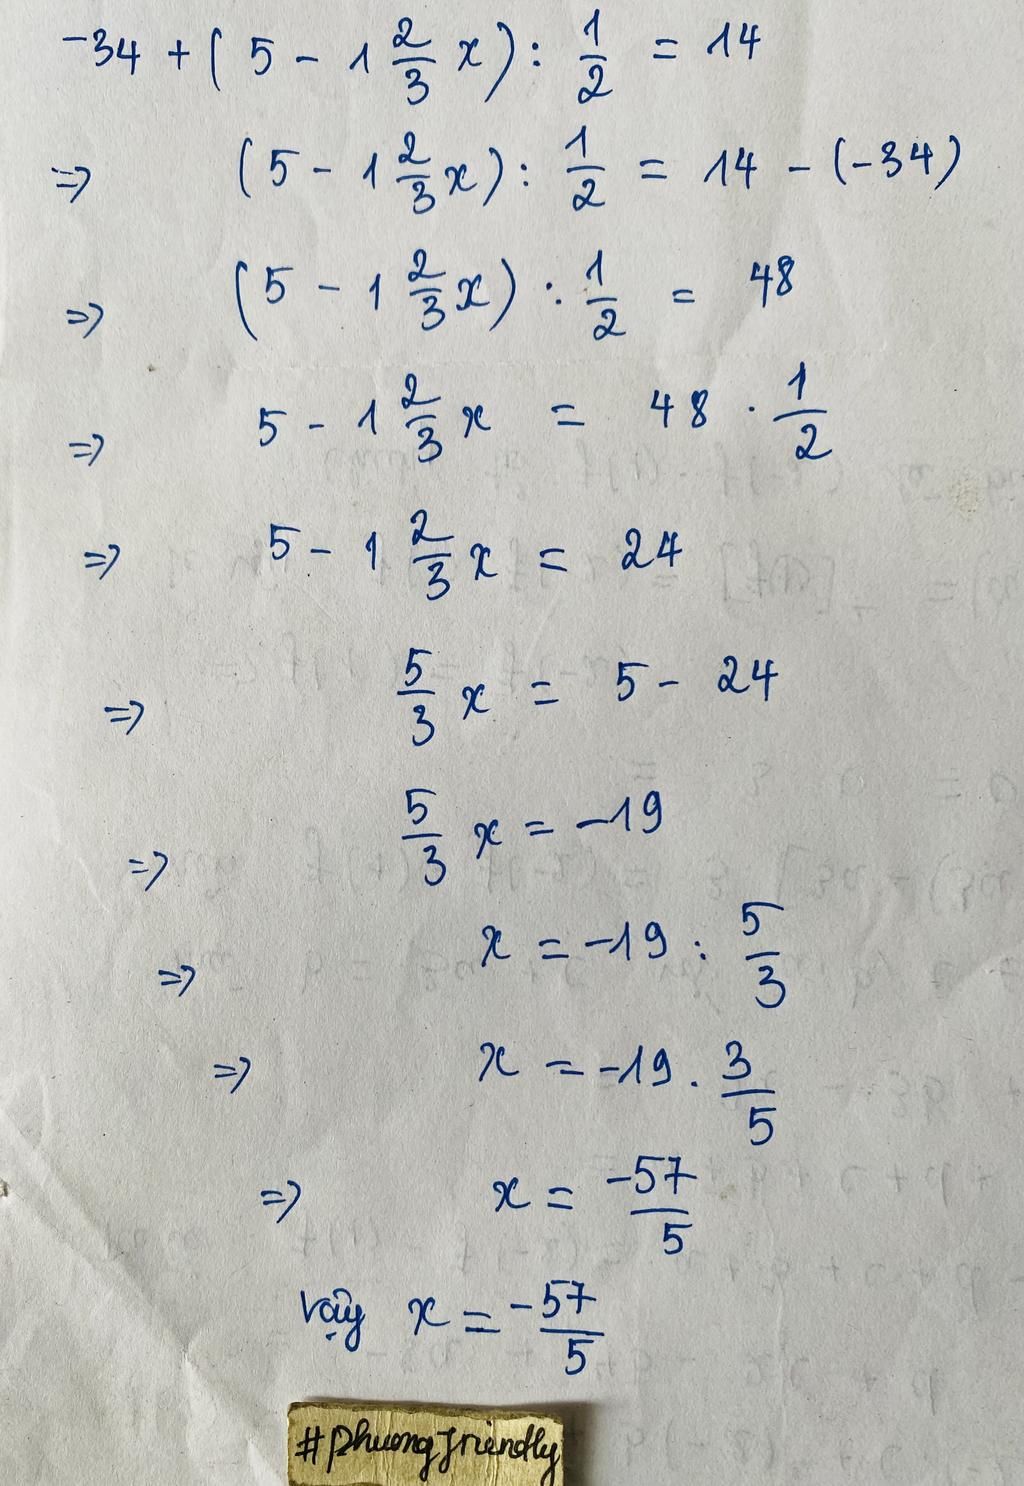 -34 + ( 5 - 1 2/3 x ) : 1/2 = 14
=> ( 5 - 1 2/3 x ) : 1/2 = 14 - (-34)
=> ( 5 - 1 2/3 x ) : 1/2 = 48
=> 5 - 1 2/3 x = 48 . 1/2
=> 5 - 1 2/3 x = 24
=> 5/3 x = 5 - 24
=> 5/3 x = -19
=> x = -19 : 5/3
=> x = -19 . 3/5
=> x = -57/5
Vậy x = -57/5
#phuongfriendly